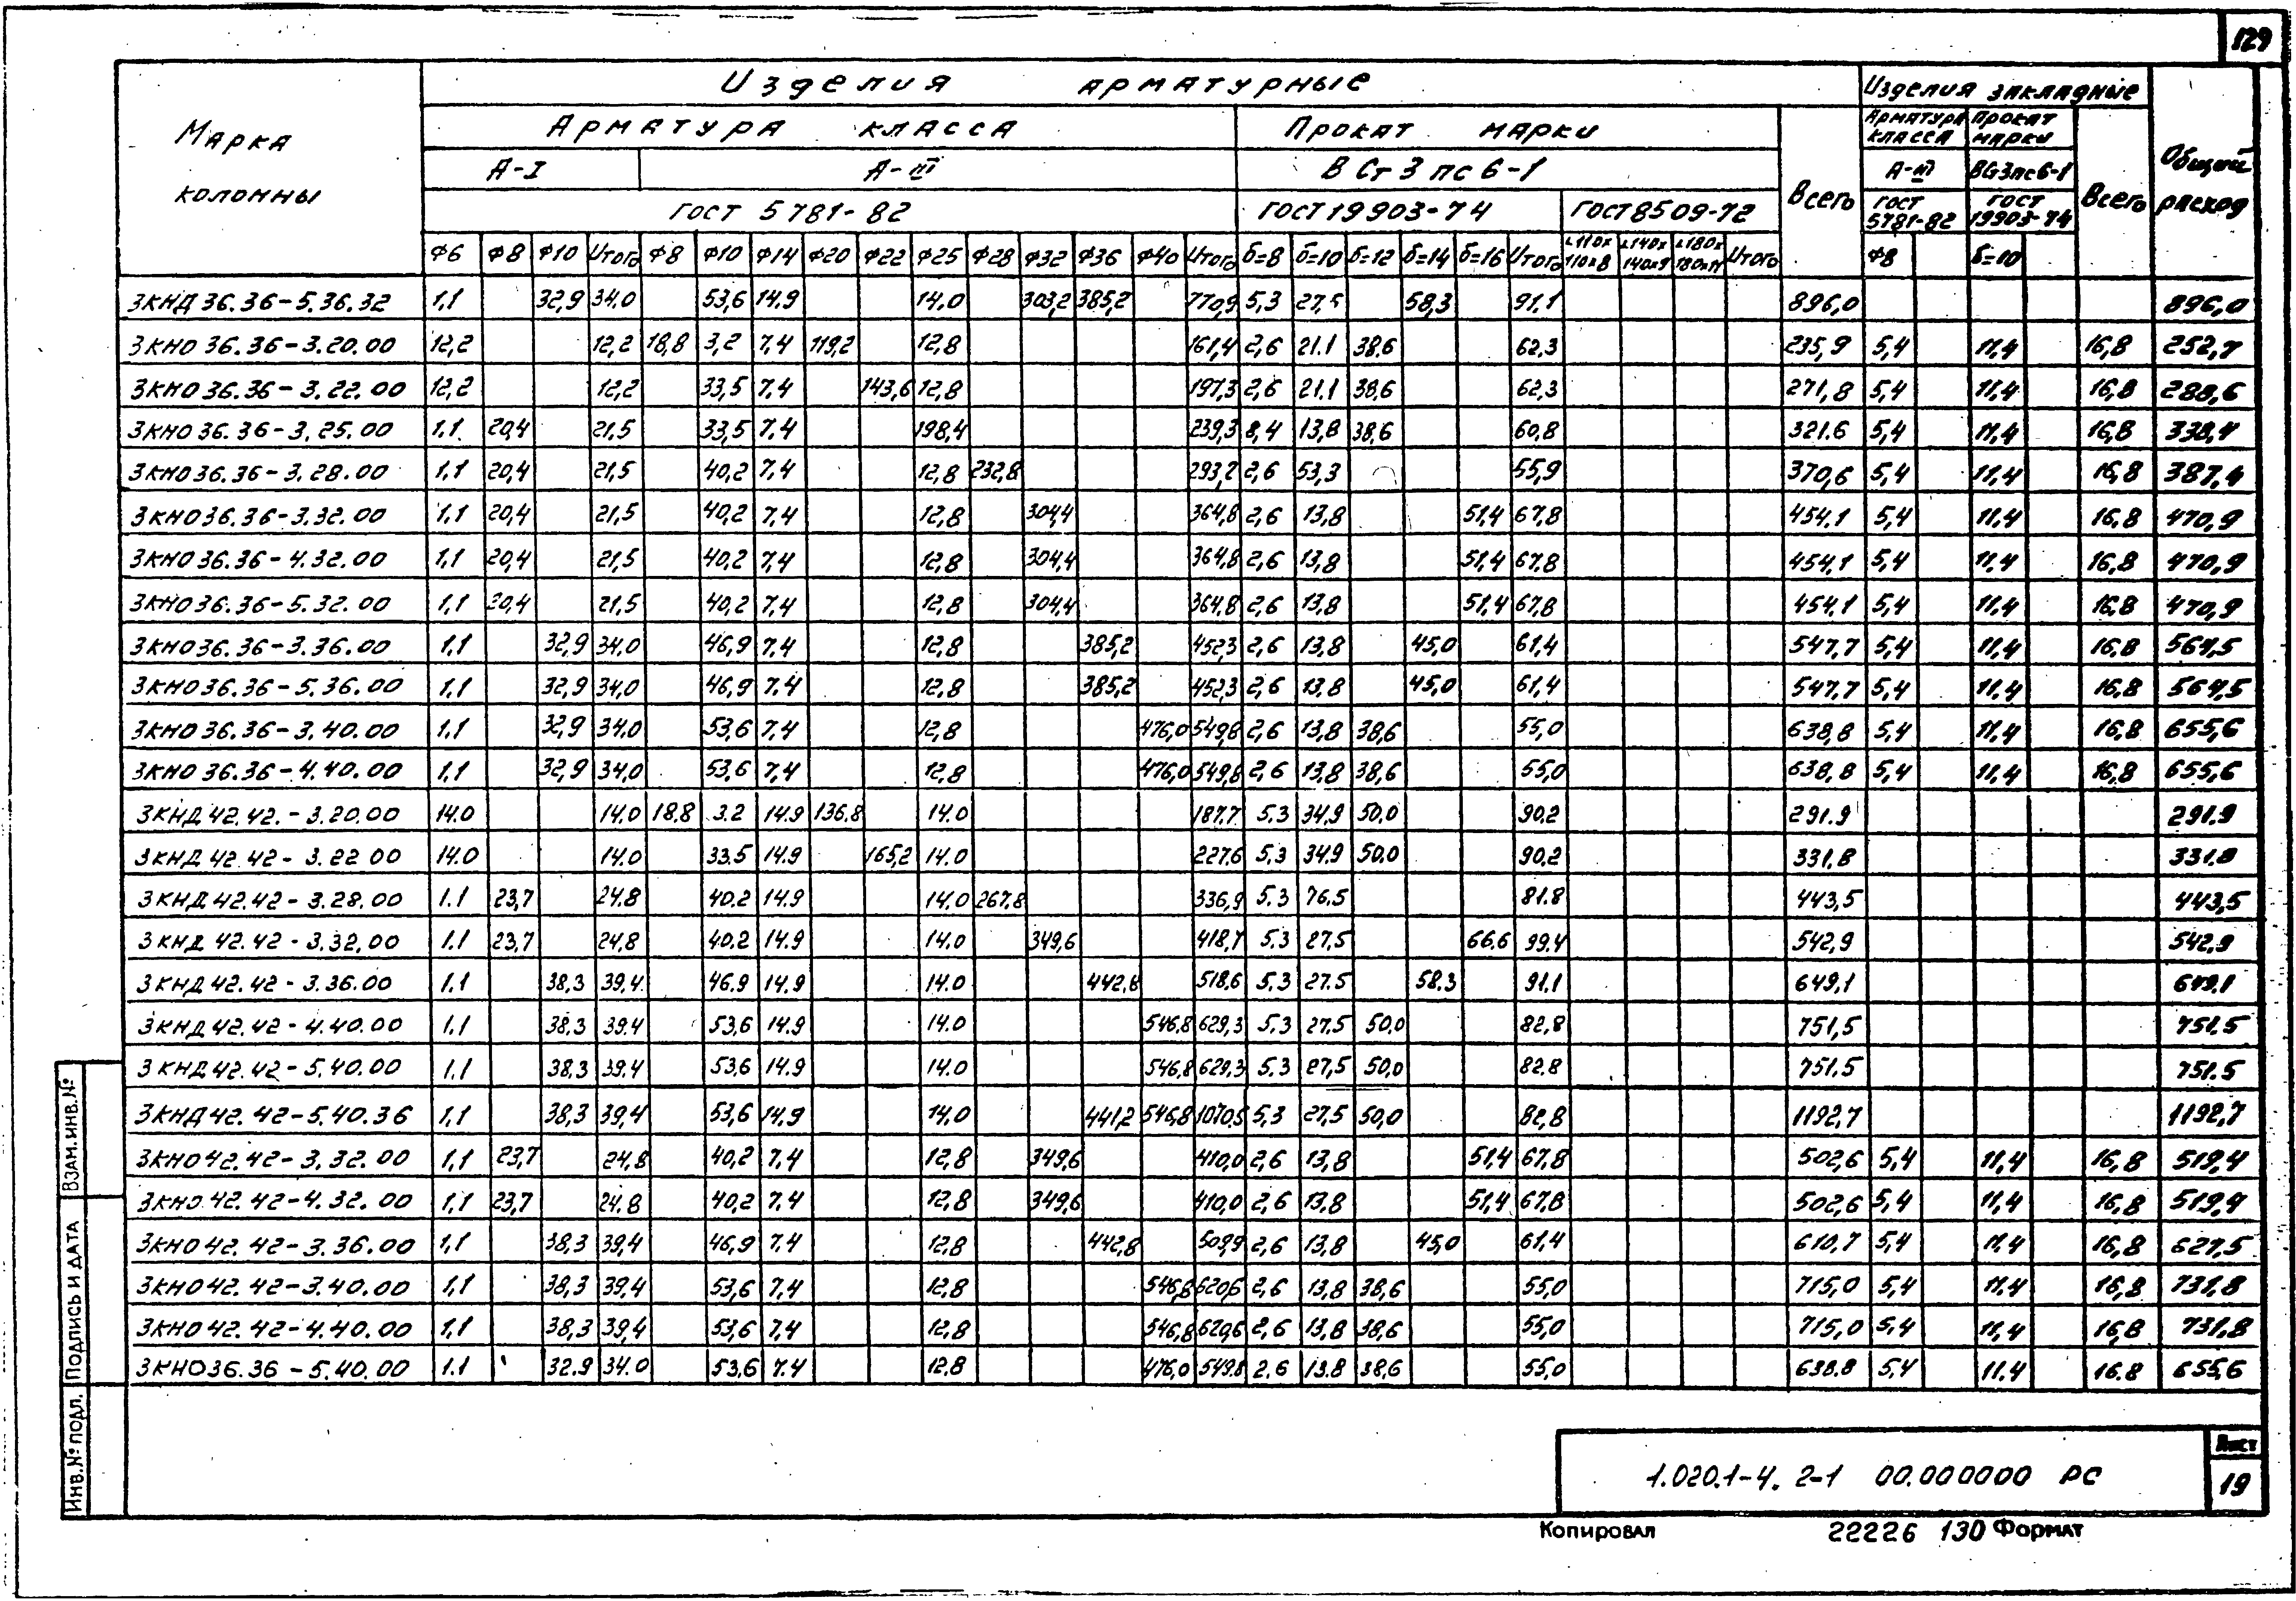 129
Марка колонны
Изделия арматурные
Изделия закладные
Общий расход
Арматура класса
Прокат марки
Всего
Арматура класса
Прокат марки
Всего
А-I
А-III
ВСт3пс6-1
А-III
ВСт3пс6-1
ГОСТ 5781-82
ГОСТ 19903-74
ГОСТ 8509-72
ГОСТ 5781-82
ГОСТ 19903-74
Ф6 Ф8 Ф10 Итого Ф8 Ф10 Ф14 Ф20 Ф22 Ф25 Ф28 Ф32 Ф36 Ф40 Итого б=8 б=10 б=12 б=14 б=16 Итого ∟110х110х8 ∟140х140х9 ∟180х180х11 Итого Ф8 б=10
3КНД 36.36-5.36.32 1,1 32,9 34,0 53,6 14,9 14,0 303,2 385,2 770,9 5,3 27,5 58,3 91,1 896,0 896,0
3КНО 36.36-3.20.00 12,2 12,2 18,8 3,2 7,4 119,2 12,8 161,4 2,6 21.1 38,6 62,3 235,9 5,4 11,4 16,8 252,7
3КНО 36.36-3.22.00 12,2 12,2 33,5 7,4 143,6 12,8 197,3 2,6 21.1 38,6 62,3 271,8 5,4 11,4 16,8 288,6
3КНО 36.36-3.25.00 1,1 20,4 21,5 33,5 7,4 198,4 239,3 8,4 13,8 38,6 60,8 321.6 5,4 11,4 16,8 338,4
3КНО 36.36-3.28.00 1,1 20,4 21,5 40,2 7,4 12,8 232,8 293,2 2,6 53,3 55,9 370,6 5,4 11,4 16,8 387,4
3КНО 36.36-3.32.00 1,1 20,4 21,5 40,2 7,4 12,8 304,4 364,8 2,6 13,8 51,4 67,8 454,1 5,4 11,4 16,8 470,9
3КНО 36.36-4.32.00 1,1 20,4 21,5 40,2 7,4 12,8 304,4 364,8 2,6 13,8 51,4 67,8 454,1 5,4 11,4 16,8 470,9
3КНО 36.36-5.32.00 1,1 20,4 21,5 40,2 7,4 12,8 304,4 364,8 2,6 13,8 51,4 67,8 454,1 5,4 11,4 16,8 470,9
3КНО 36.36-3.36.00 1,1 32,9 34,0 46,9 7,4 12,8 385,2 452,3 2,6 13,8 45,0 61,4 547,7 5,4 11,4 16,8 564,5
3КНО 36.36-5.36.00 1,1 32,9 34,0 46,9 7,4 12,8 385,2 452,3 2,6 13,8 45,0 61,4 547,7 5,4 11,4 16,8 564,5
3КНО 36.36-3.40.00 1,1 32,9 34,0 53,6 7,4 12,8 476,0 549,8 2,6 13,8 38,6 55,0 638,8 5,4 11,4 16,8 655,6
3КНО 36.36-4.40.00 1,1 32,9 34,0 53,6 7,4 12,8 476,0 549,8 2,6 13,8 38,6 55,0 638,8 5,4 11,4 16,8 655,6
3КНД 42.42.-3.20.00 14.0 14.0 18.8 3.2 14.9 136.8 14.0 187.7 5.3 34,9 50,0 90.2 291.9 291.9
3КНД 42.42-3.22 00 14.0 14.0 33.5 14.9 165,2 14.0 227.6 5.3 34.9 50.0 90,2 331.8 331.8
3КНД 42.42-3.28.00 1.1 23,7 24.8 40.2 14.9 14.0 267,8 336,9 5.3 76.5 81.8 443,5 443,5
3КНД 42.42-3.32.00 1.1 23,7 24,8 40.2 14.9 14.0 349,6 418,7 5.3 27.5 66.6 99.4 542,9 542,9
3КНД 42.42-3.36.00 1.1 38,3 39,4 46.9 14.9 14.0 442,8 518,6 5.3 27.5 58.3 91.1 649,1 649,1
3КНД 42.42-4.40.00 1,1 38.3 39.4 53,6 14.9 14.0 546,8 629,3 5.3 27,5 50,0 82,8 751,5 751.5
3КНД 42.42-5.40.00 1,1 38,3 39,4 53,6 14.9 14.0 546,8 629,3 5.3 27,5 50,0 82.8 751.5 751.5
3КНД 42.42-5.40.36 1,1 38,3 39,4 53,6 14,9 14,0 441,2 546,8 1070,5 5,3 27,5 50,0 82,8 1192,7 1192,7
3КНО 42.42-3.32.00 1,1 23,7 24,8 40,2 7,4 12,8 349,6 410,0 2,6 13,8 51,4 67,8 502,6 5,4 11,4 16,8 519,4
3КНО 42.42-4.32.00 1,1 23,7 24,8 40,2 7,4 12,8 349,6 410,0 2,6 13,8 51,4 67,8 502,6 5,4 11,4 16,8 519,4
3КНО 42.42-3.36.00 1,1 38,3 39,4 46,9 7,4 12,8 442,8 509,9 2,6 13,8 45,0 61,4 610,7 5,4 11,4 16,8 627,5
3КНО 42.42-3.40.00 1,1 38,3 39,4 53,6 7,4 12,8 546,8 620,6 2,6 13,8 38,6 55,0 715,0 5,4 11,4 16,8 731,8
3КНО 42.42-4.40.00 1,1 38,3 39,4 53,6 7,4 12,8 546,8 620,6 2,6 13,8 38,6 55,0 715,0 5,4 11,4 16,8 731,8
3КНО 36.36-5.40.00 1.1 32.9 34.0 53,6 7.4 12.8 476,0 549.8 2.6 13.8 38,6 55,0 638.8 5,4 11.4 16.8 655,6
Взам.инв.№
Подпись и дата
Инв.№ подл.
1.020.1-4. 2-1 00.000000 РС
Лист
19
Копировал 22226 130 Формат